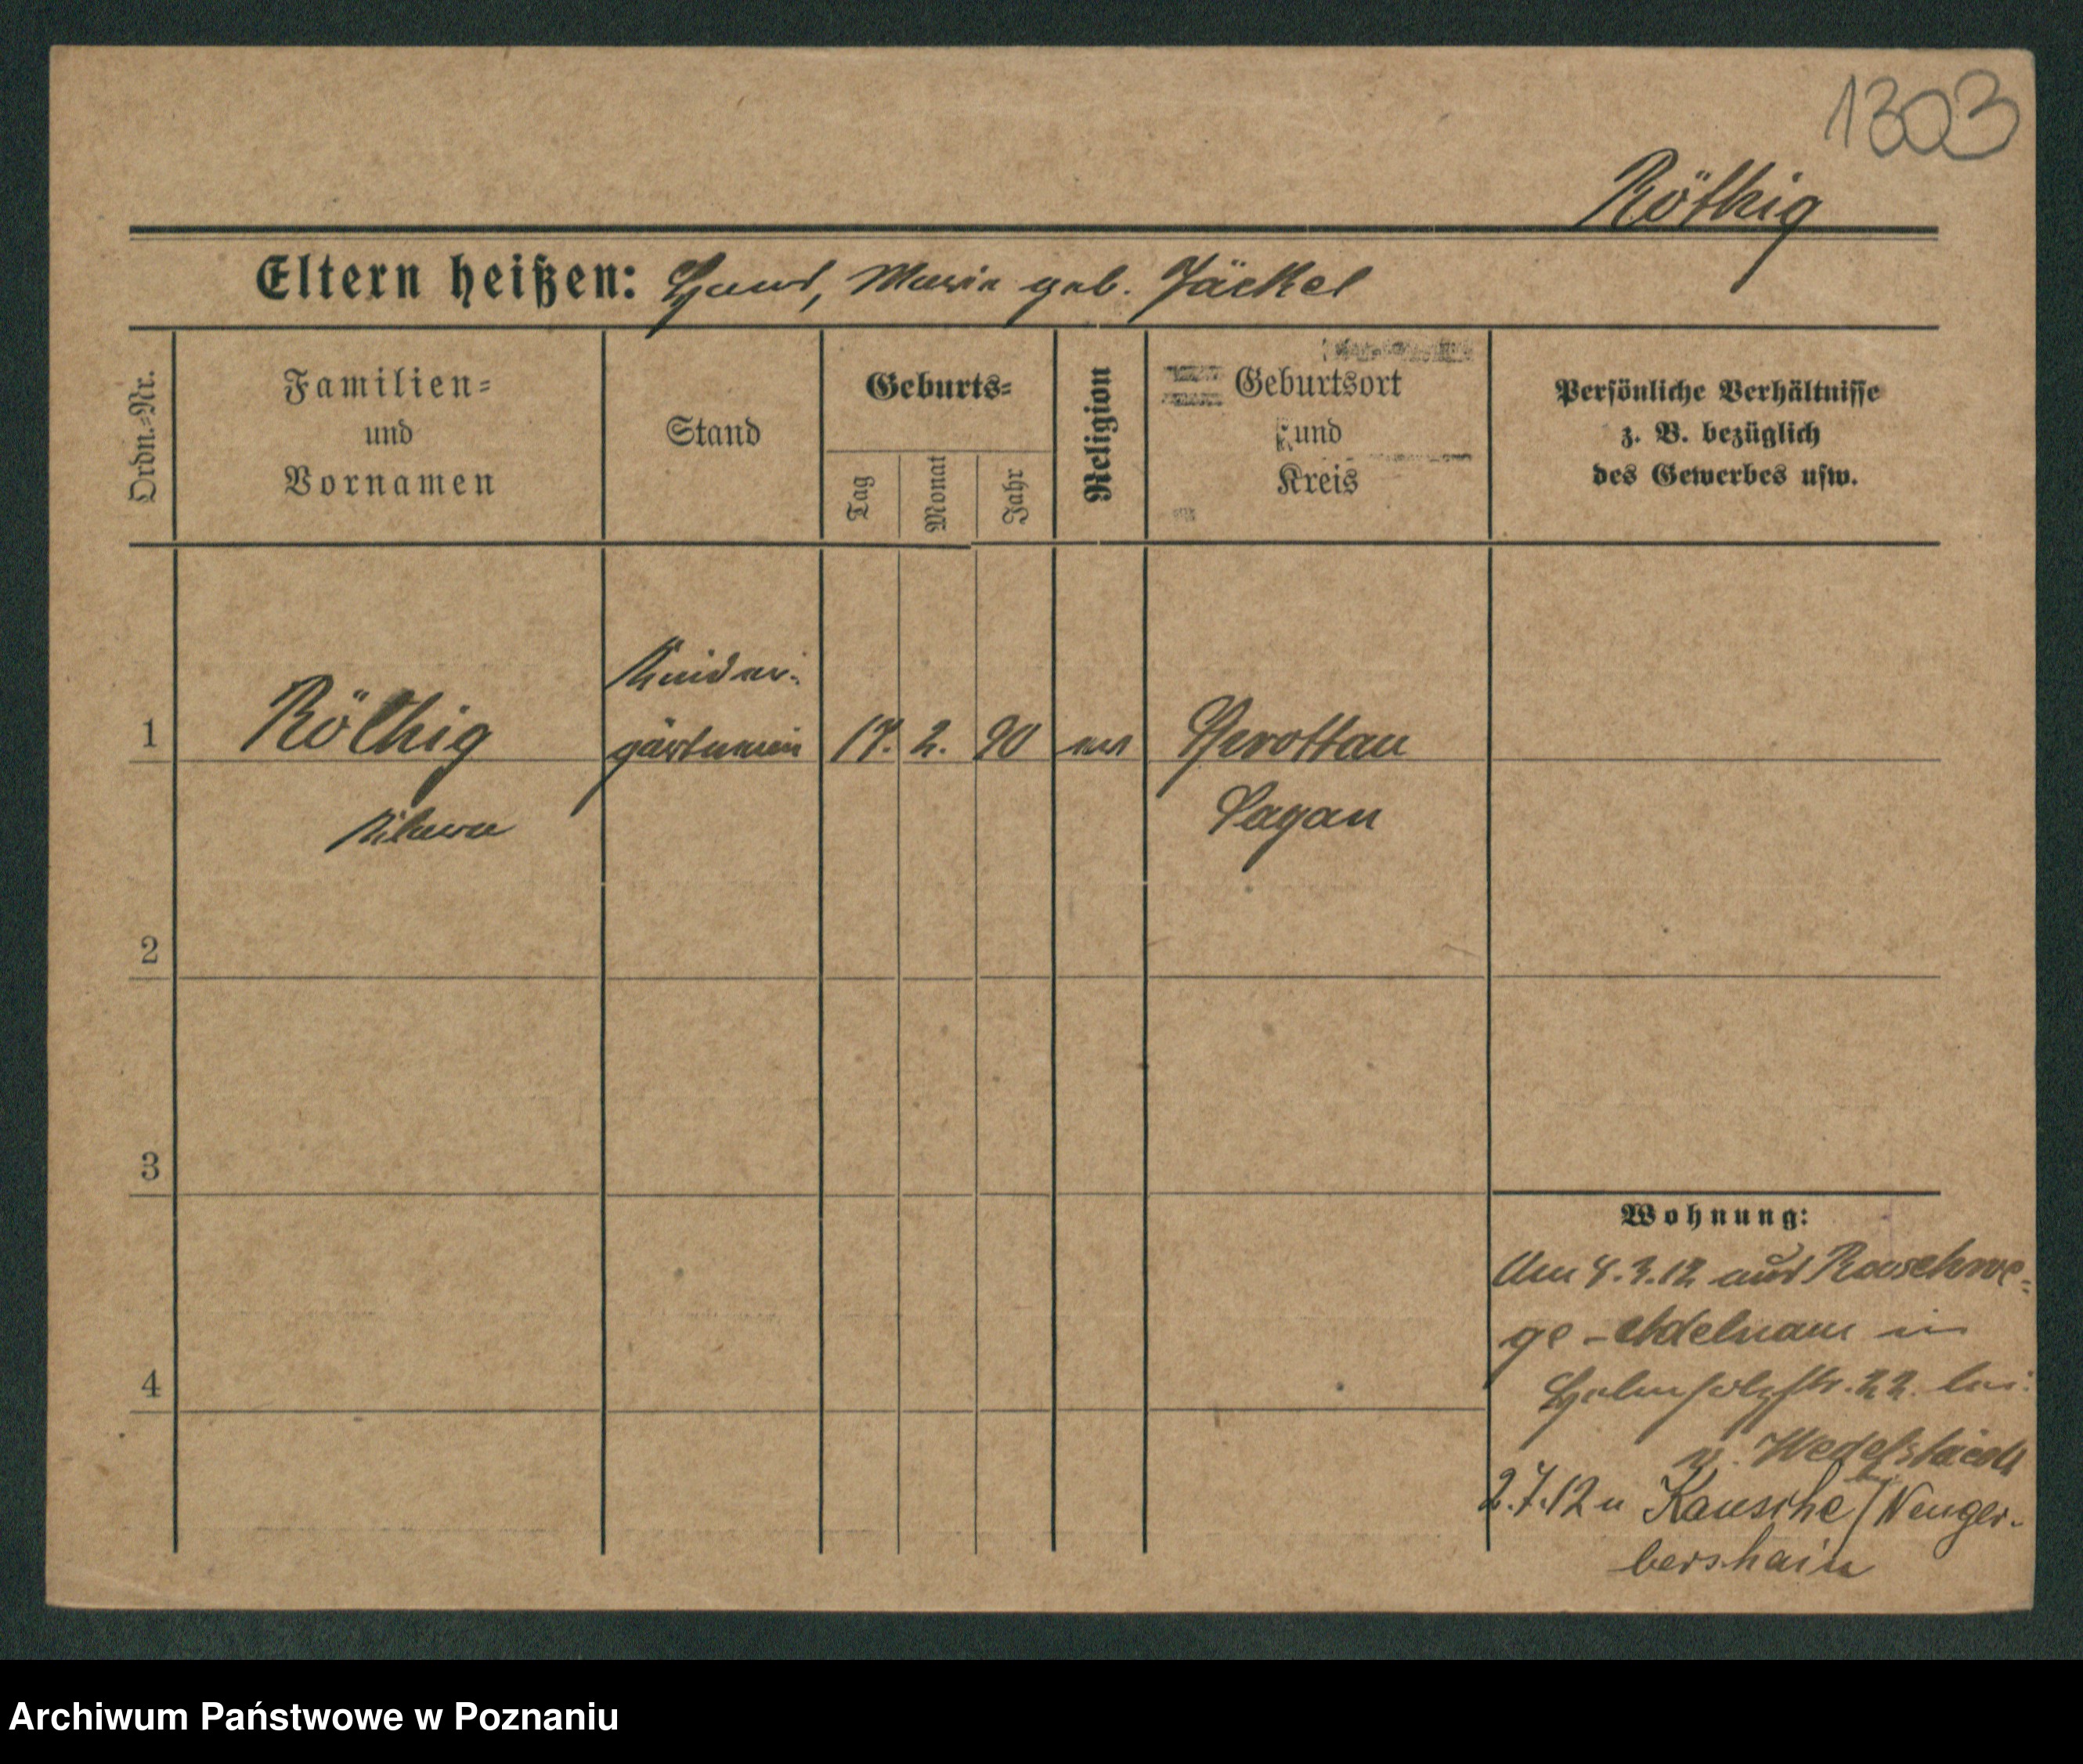 1303
Röthig
Eltern heißen: Hans, Maria geb. Jäckel
Ordn.-Nr.
Familien-
und
Vornamen
Stand
Geburts-
Tag
Monat
Jahr
Religion
Geburtsort
und
Kreis
Persönliche Verhältnisse
z. B. bezüglich
des Gewerbes usw.
Kinder-
1 Röthig gärtnerin 17. 2. 90 ev Pfrottau
Sagan
2
3
4
Wohnung:
Am 8.3.12 aus
ge - Adelnau in
22. bei
v. Wedelstaedt
2.7.12 n Kausche /
bershain
Archiwum Państwowe w Poznaniu